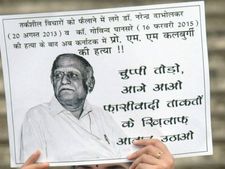 तर्कशील विचारों को फैलाने में लगे डॉ. नरेन्द्र दाभोलकर
(20 अगस्त 2013) व कॉ. गोविन्द पानसरे (16 फरवरी 2015)
की हत्या के बाद अब कर्नाटक में प्रो. एम. एम कलबुर्गी
की हत्या !!
चुप्पी तोड़ो,
आगे आओ
फासीवादी ताकतों
के खिलाफ़
आवाज़ उठाओ